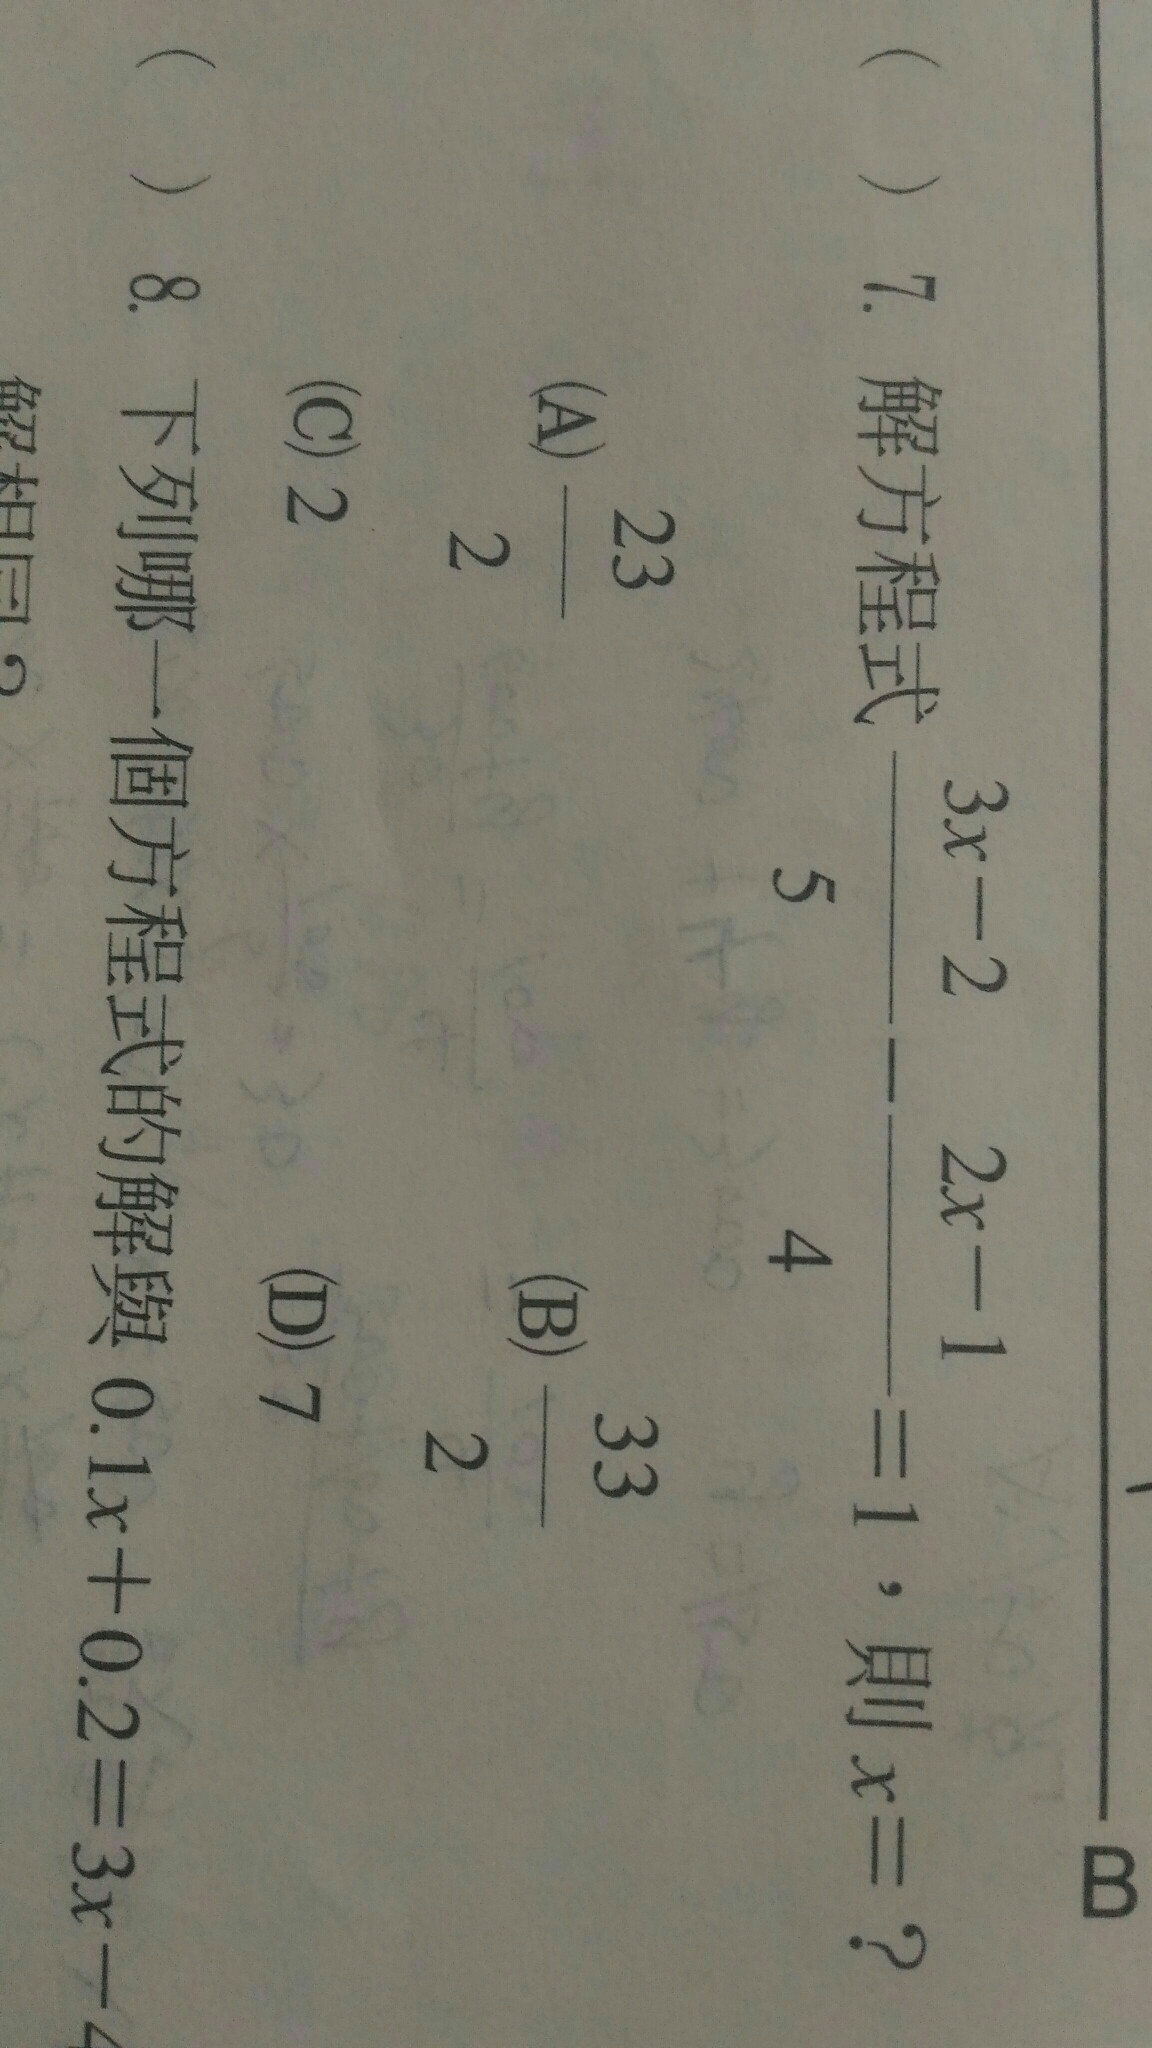 B
( ) 7. 解方程式 3x－2/5 － 2x－1/4 ＝1，則 x＝？
(A) 23/2 (B) 33/2
(C) 2 (D) 7
( ) 8. 下列哪一個方程式的解與 0.1x＋0.2＝3x－4
解相同？